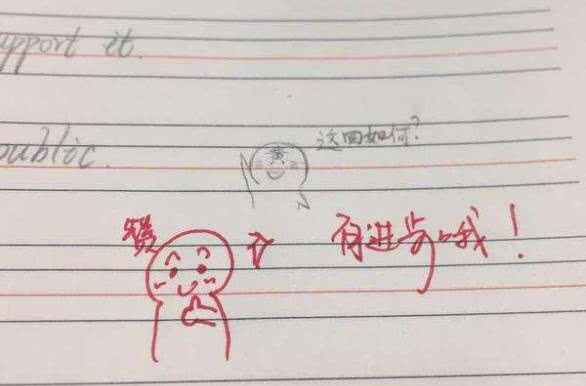 upport it.
public.
这回如何?
黄
赞
有进步哦!